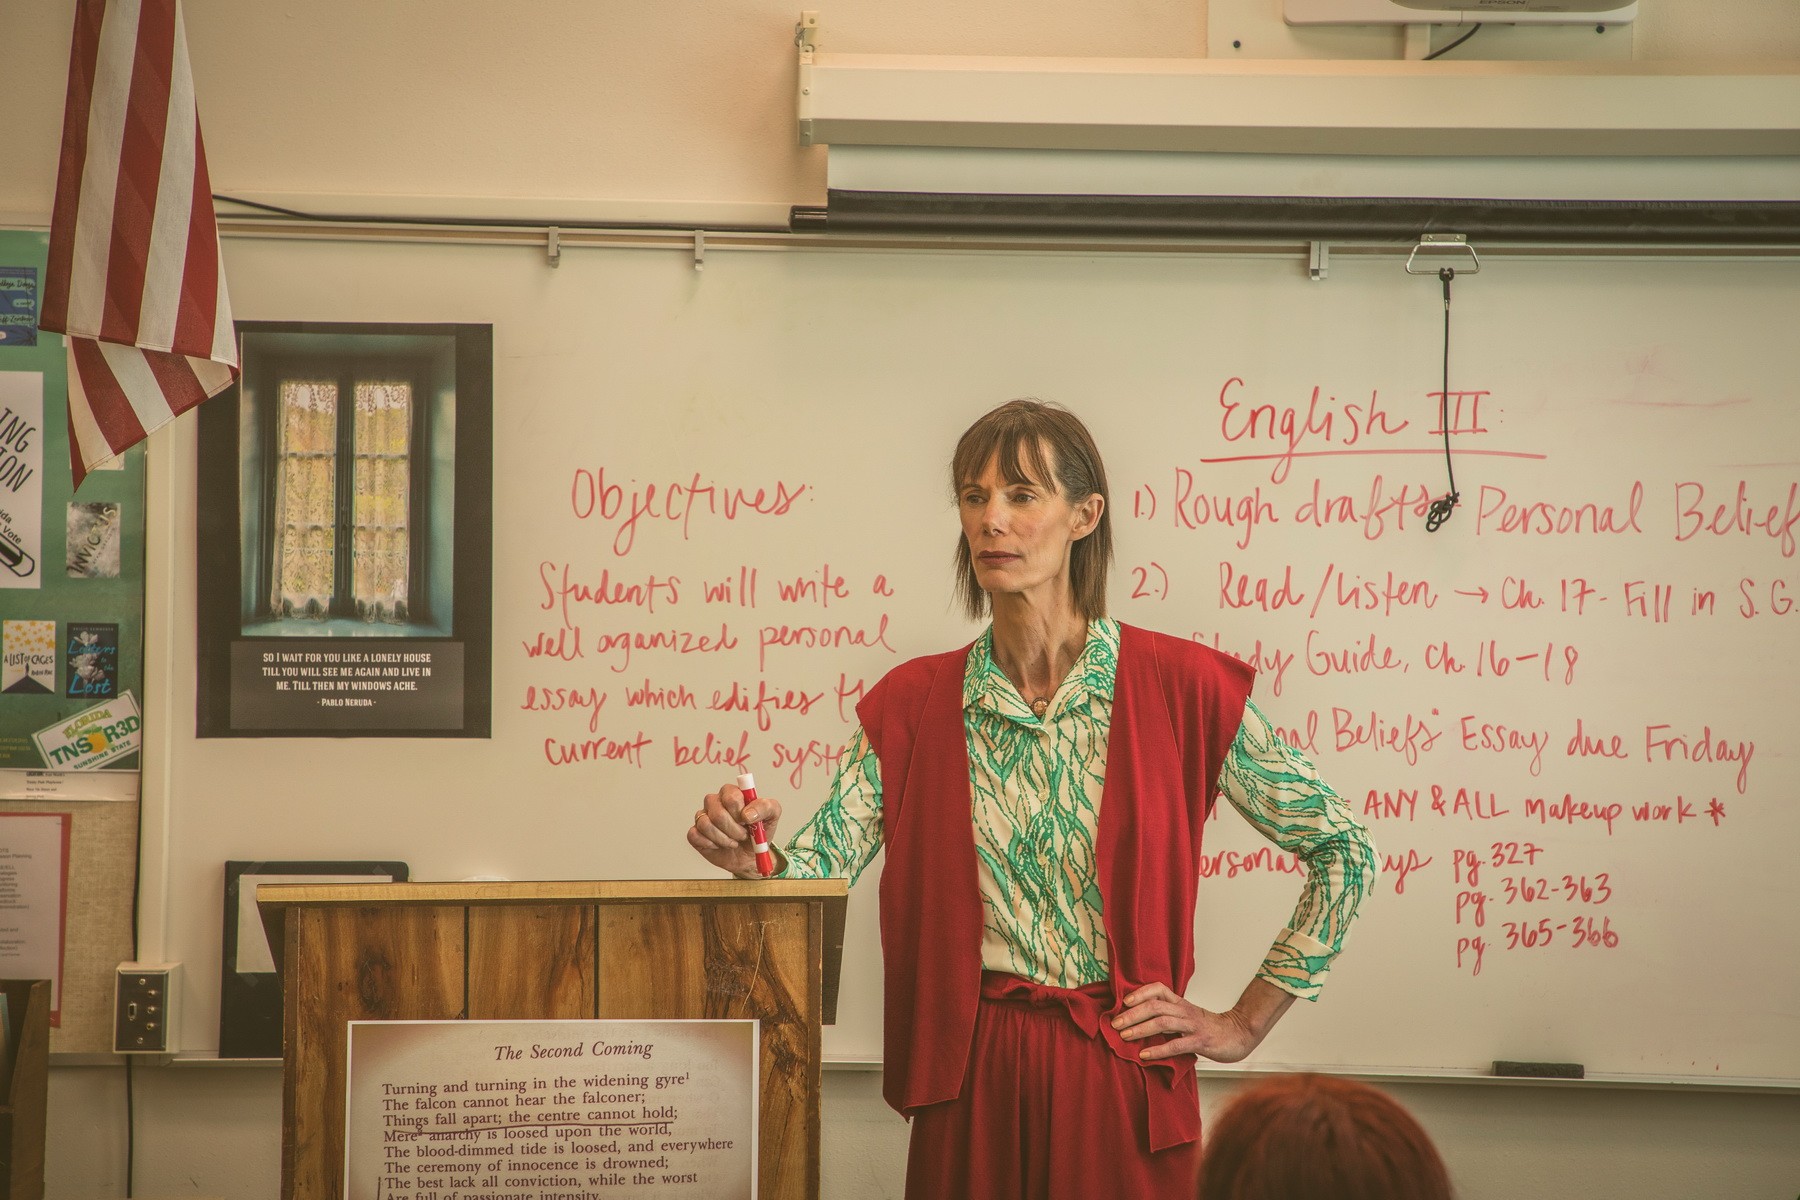 EPSON
SO I WAIT FOR YOU LIKE A LONELY HOUSE
TILL YOU WILL SEE ME AGAIN AND LIVE IN
ME. TILL THEN MY WINDOWS ACHE.
- PABLO NERUDA -
INVICTUS
A LIST OF CAGES
Leaders
Lost
TNS★R3D
SUNSHINE STATE
Objectives:
Students will write a
well organized personal
essay which edifies th
current belief syste
English III:
1.) Rough drafts Personal Belief
2.) Read/Listen → Ch. 17 - Fill in S.G.
Study Guide, Ch. 16-18
nal Beliefs" Essay due Friday
ANY & ALL makeup work *
ersonal ys pg. 327
pg. 362-363
pg. 365-366
The Second Coming
Turning and turning in the widening gyre¹
The falcon cannot hear the falconer;
Things fall apart; the centre cannot hold;
Mere² anarchy is loosed upon the world,
The blood-dimmed tide is loosed, and everywhere
The ceremony of innocence is drowned;
The best lack all conviction, while the worst
Are full of passionate intensity.